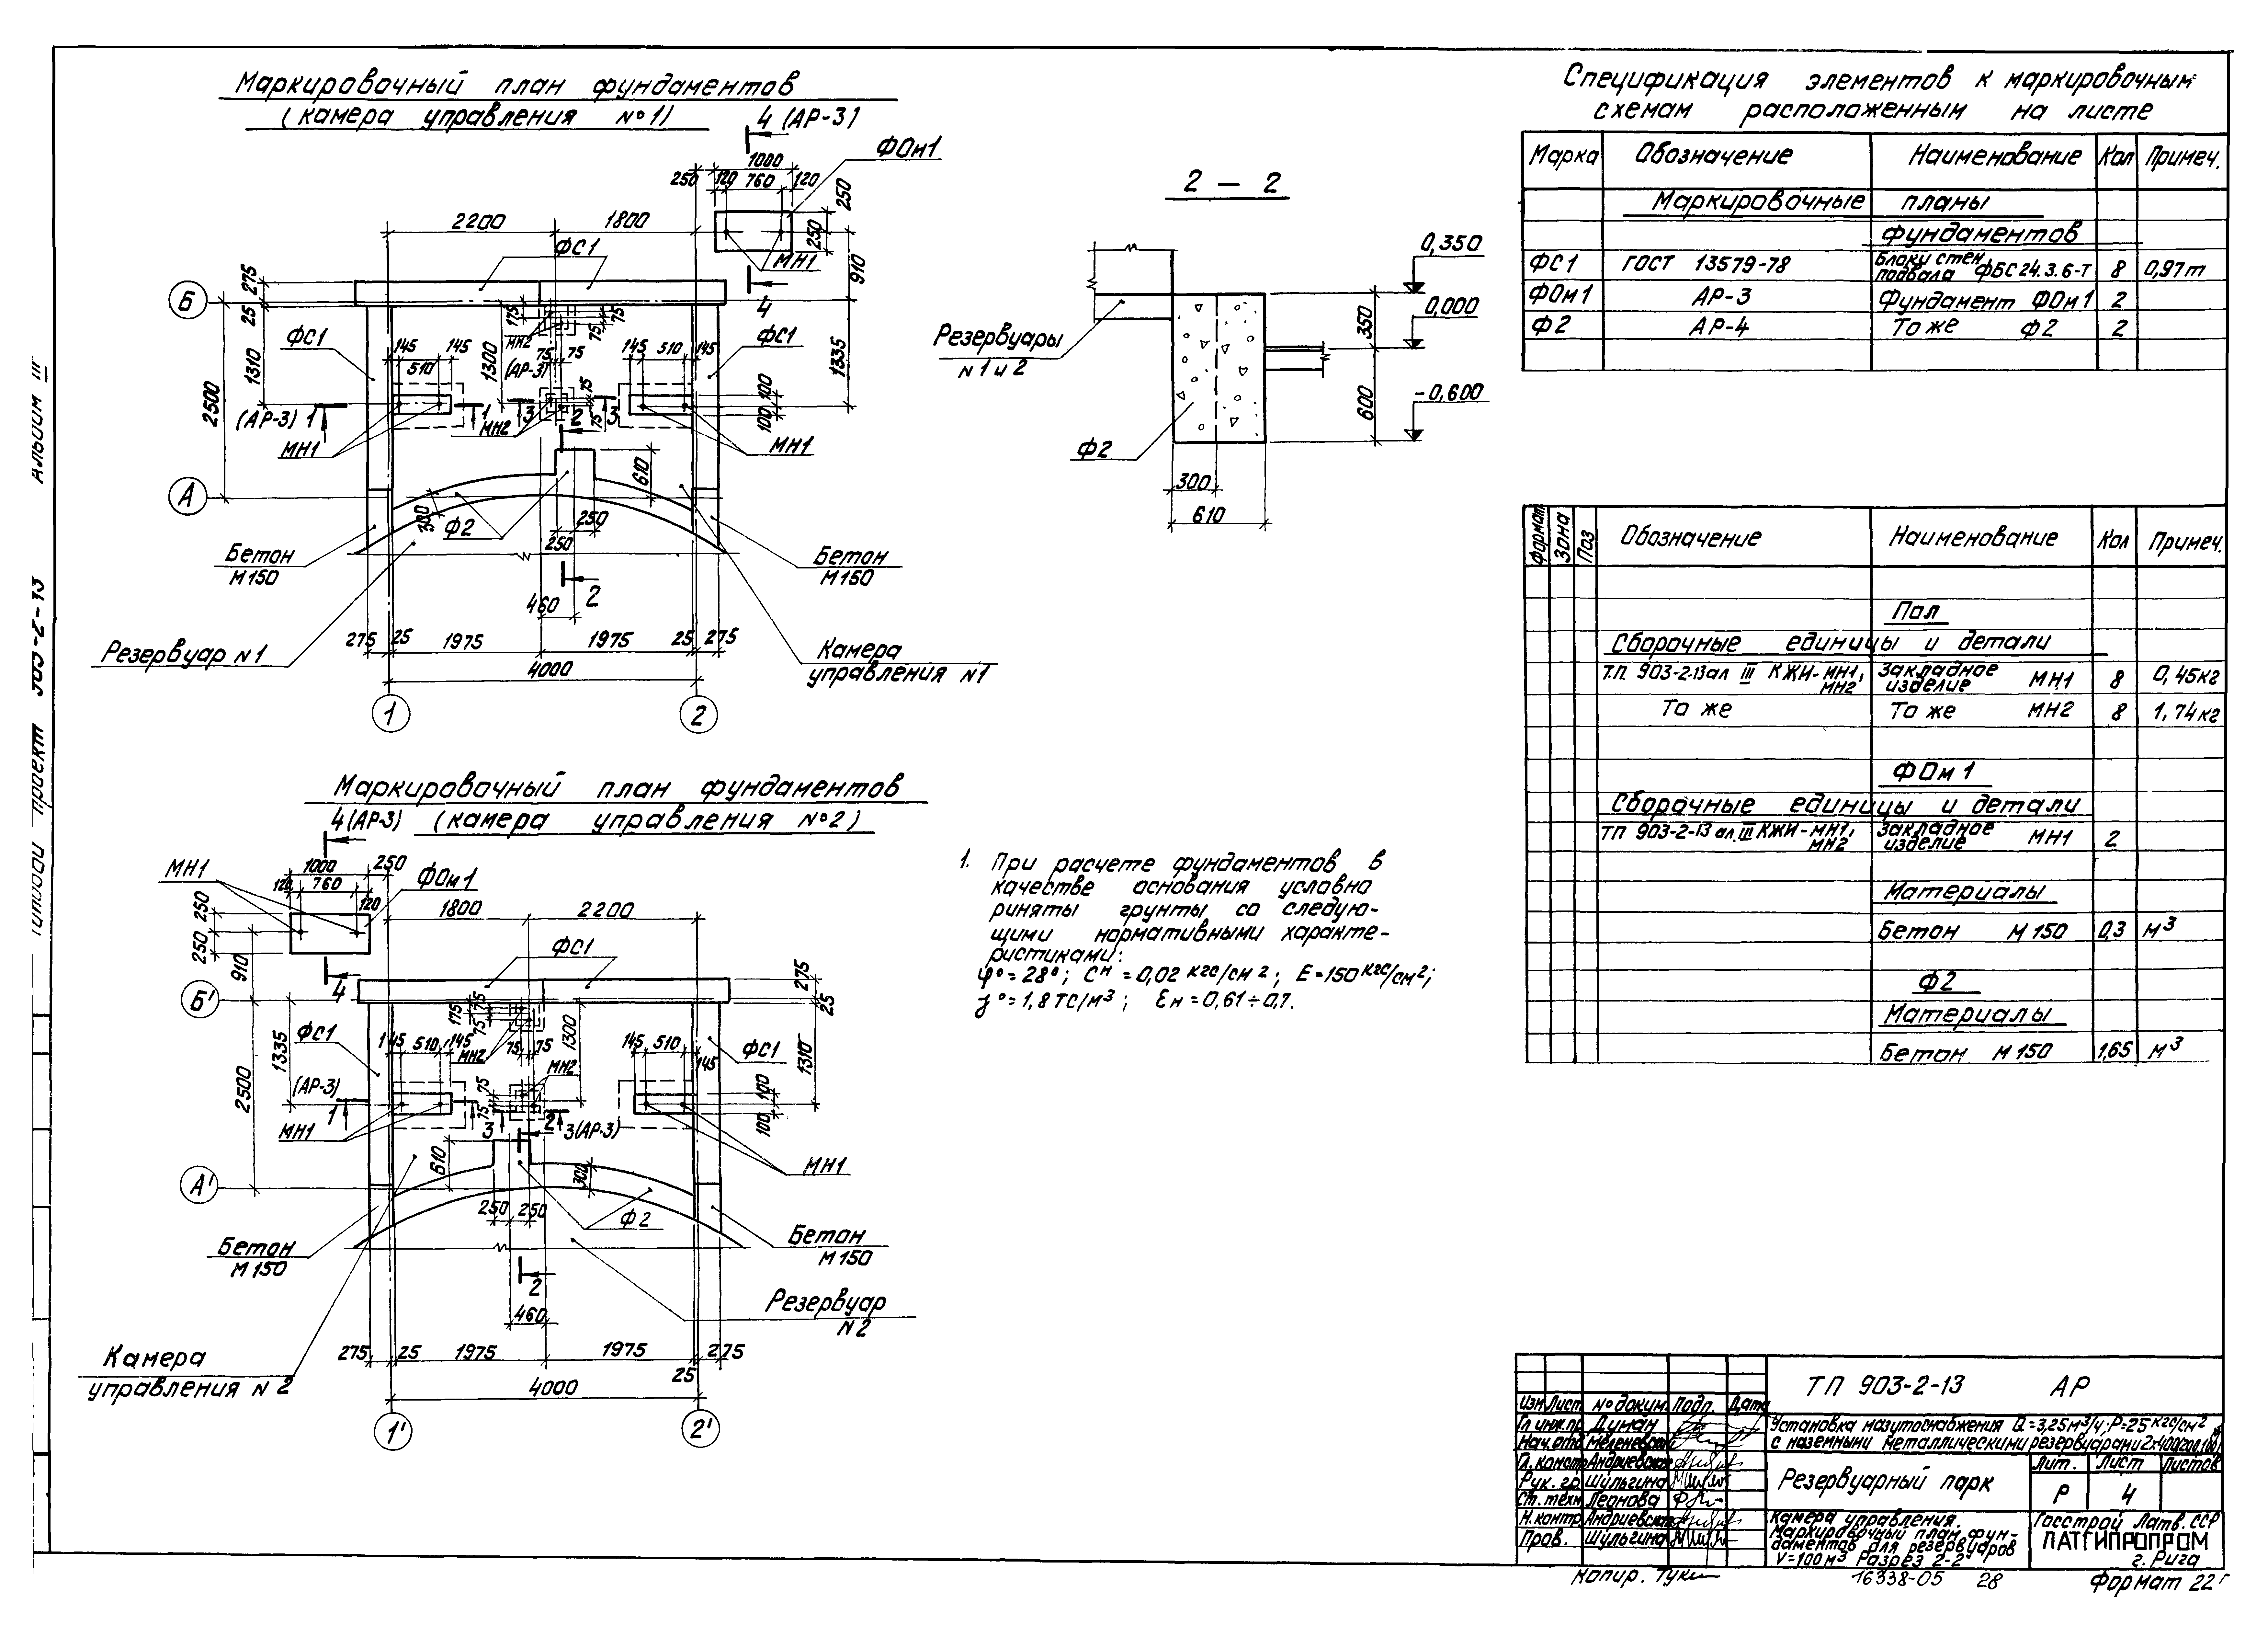 Маркировочный план фундаментов
(камера управления №1)
4 (АР-3)
ФОм1
1000
250
120
760
120
250
250
2200
1800
ФС1
МН1
910
4
275
Б
25
175
75
75
МН2
ФС1
145
145
510
1310
2500
1300
(АР-3)
75
75
75
75
145
510
145
ФС1
1335
100
100
(АР-3) 1
1
3
3
МН2
МН1
2
МН1
А
610
300
Ф2
250
250
Бетон
М150
Бетон
М150
2
460
275
25
1975
1975
25
275
Резервуар №1
4000
Камера
управления №1
1
2
2 — 2
0,350
0,000
-0,600
350
600
Резервуары
№1 и 2
Ф2
300
610
Маркировочный план фундаментов
4 (АР-3) (камера управления №2)
МН1
1000
250
120
760
120
ФОм1
250
250
1800
2200
910
4
ФС1
275
25
Б'
175
75
75
ФС1
145
510
145
МН2
75
75
1300
МН2
ФС1
145
510
145
1335
2500
1310
(АР-3)
1
75
75
100
100
МН1
3
2
3(АР-3)
МН1
610
300
А'
250
250
Ф2
Бетон
М150
Бетон
М150
2
Резервуар
№2
460
275
25
1975
1975
25
275
Камера
управления №2
4000
1'
2'
1. При расчете фундаментов в
качестве основания условно
риняты грунты со следую-
щими нормативными характе-
ристиками:
φ° = 28°; Cн = 0,02 кгс/см2; Е = 150 кгс/см2;
γ° = 1,8 тс/м3; Ен = 0,61÷0,7.
Спецификация элементов к маркировочным
схемам расположенным на листе
Марка Обозначение Наименование Кол Примеч.
Маркировочные планы
фундаментов
ФС1 ГОСТ 13579-78 Блоки стен подвала ФБС24.3.6-Т 8 0,97т
ФОм1 АР-3 Фундамент ФОм1 2
Ф2 АР-4 То же Ф2 2
Формат Зона Поз Обозначение Наименование Кол Примеч.
Пол
Сборочные единицы и детали
Т.П. 903-2-13 ал III КЖИ-МН1, МН2 Закладное изделие МН1 8 0,45кг
То же То же МН2 8 1,74кг
ФОм1
Сборочные единицы и детали
ТП 903-2-13 ал. III КЖИ-МН1, МН2 Закладное изделие МН1 2
Материалы
Бетон М150 0,3 м3
Ф2
Материалы
Бетон М150 1,65 м3
ТП 903-2-13 АР
Изм Лист № докум. Подп. Дата
Гл инж.пр Думан
Нач.отд
Гл. констр Андриевская
Рук. гр Шульгина
Ст. техн Леонова
Н.контр Андриевская
Пров. Шульгина
Установка мазутоснабжения Q=3,25м3/ч; Р=25кгс/см2
с наземными металлическими резервуарами 2×400(200,100)
Резервуарный парк
Лит. Лист Листов
Р 4
Камера управления.
Маркировочный план фун-
даментов для резервуаров
V=100м3 Разрез 2-2
Госстрой Латв.ССР
ЛАТГИПРОПРОМ
г. Рига
Копир.
16338-05 28
Формат 22г
Альбом III
Типовой проект 903-2-13